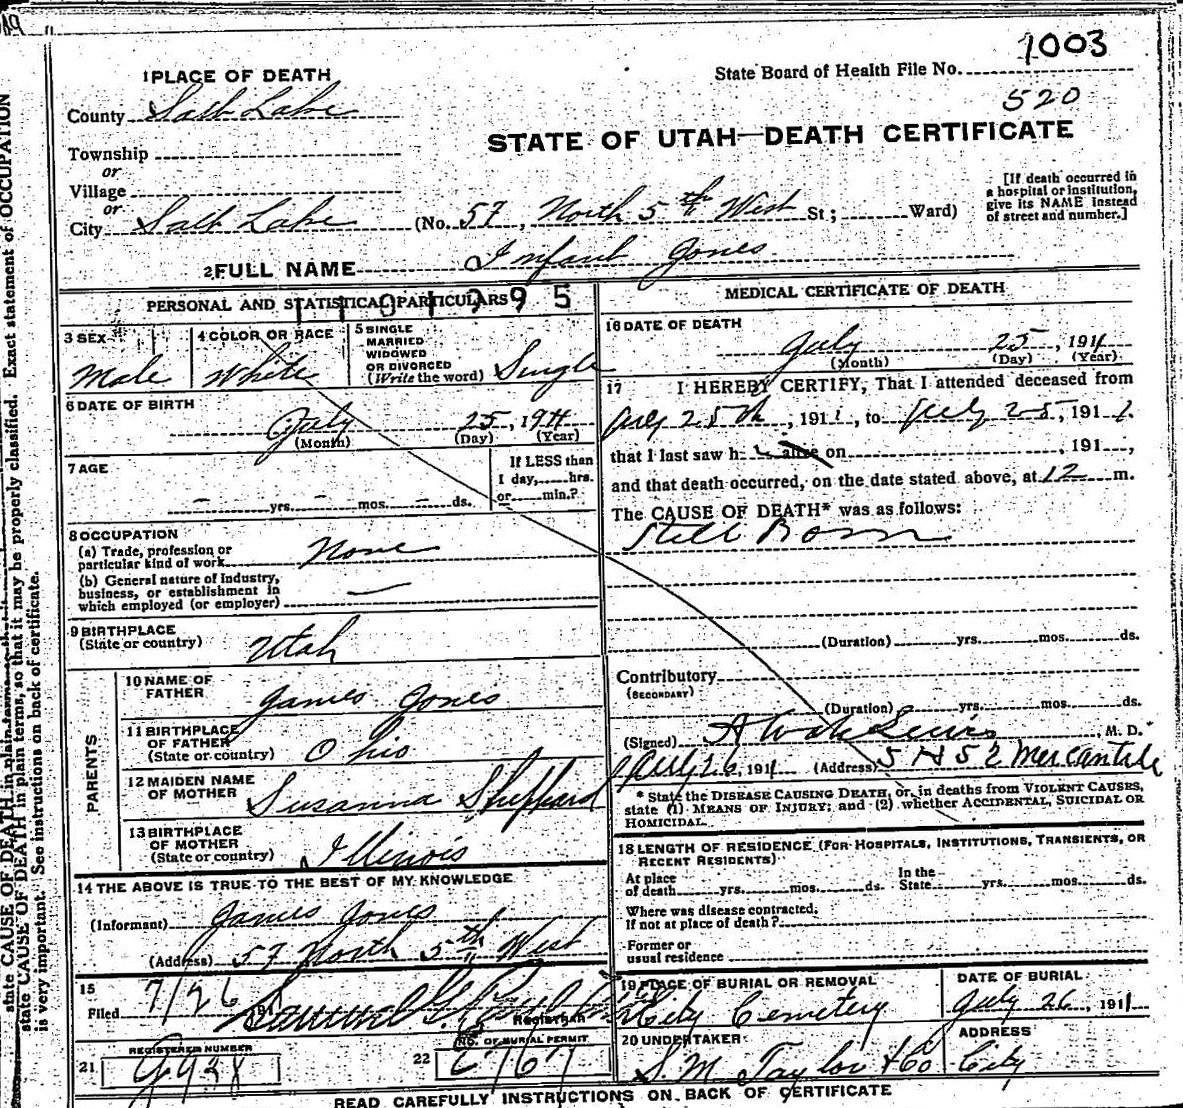 1003
1 PLACE OF DEATH
State Board of Health File No.
520
County Salt Lake
STATE OF UTAH—DEATH CERTIFICATE
Township
or
Village
or
City Salt Lake (No. 57, North 5th West St; Ward)
[If death occurred in a hospital or institution, give its NAME instead of street and number.]
2 FULL NAME Infant Jones
PERSONAL AND STATISTICAL PARTICULARS
3 SEX Male
4 COLOR OR RACE White
5 SINGLE
MARRIED
WIDOWED
OR DIVORCED
(Write the word) Single
6 DATE OF BIRTH
July 25, 1911
(Month) (Day) (Year)
7 AGE
yrs. mos. ds.
If LESS than
1 day, hrs.
or min.?
8 OCCUPATION
(a) Trade, profession or
particular kind of work None
(b) General nature of Industry,
business, or establishment in
which employed (or employer)
9 BIRTHPLACE
(State or country) Utah
PARENTS
10 NAME OF
FATHER James Jones
11 BIRTHPLACE
OF FATHER
(State or country) Ohio
12 MAIDEN NAME
OF MOTHER Susanna Sheppard
13 BIRTHPLACE
OF MOTHER
(State or country) Illinois
14 THE ABOVE IS TRUE TO THE BEST OF MY KNOWLEDGE
(Informant) James Jones
(Address) 57 North 5th West
15
Filed 7/26 191
REGISTRAR
21 REGISTERED NUMBER
22 No. OF BURIAL PERMIT
MEDICAL CERTIFICATE OF DEATH
16 DATE OF DEATH
July 25, 1911
(Month) (Day) (Year)
17 I HEREBY CERTIFY, That I attended deceased from
July 25th, 1911, to July 25, 1911.
that I last saw h alive on , 191 ,
and that death occurred, on the date stated above, at 12 m.
The CAUSE OF DEATH* was as follows:
Still Born
(Duration) yrs. mos. ds.
Contributory
(SECONDARY)
(Duration) yrs. mos. ds.
(Signed) , M. D.
July 26, 1911 (Address) Mercantile
* State the DISEASE CAUSING DEATH, or, in deaths from VIOLENT CAUSES,
state (1) MEANS OF INJURY; and (2) whether ACCIDENTAL, SUICIDAL OR
HOMICIDAL.
18 LENGTH OF RESIDENCE (FOR HOSPITALS, INSTITUTIONS, TRANSIENTS, OR
RECENT RESIDENTS)
At place
of death yrs. mos. ds.
In the
State yrs. mos. ds.
Where was disease contracted,
If not at place of death?
Former or
usual residence
19 PLACE OF BURIAL OR REMOVAL
City Cemetery
DATE OF BURIAL
July 26, 1911
20 UNDERTAKER
S. M. Taylor & Co
ADDRESS
City
READ CAREFULLY INSTRUCTIONS ON BACK OF CERTIFICATE
state CAUSE OF DEATH in plain terms, so that it may be properly classified. Exact statement of OCCUPATION
is very important. See instructions on back of certificate.